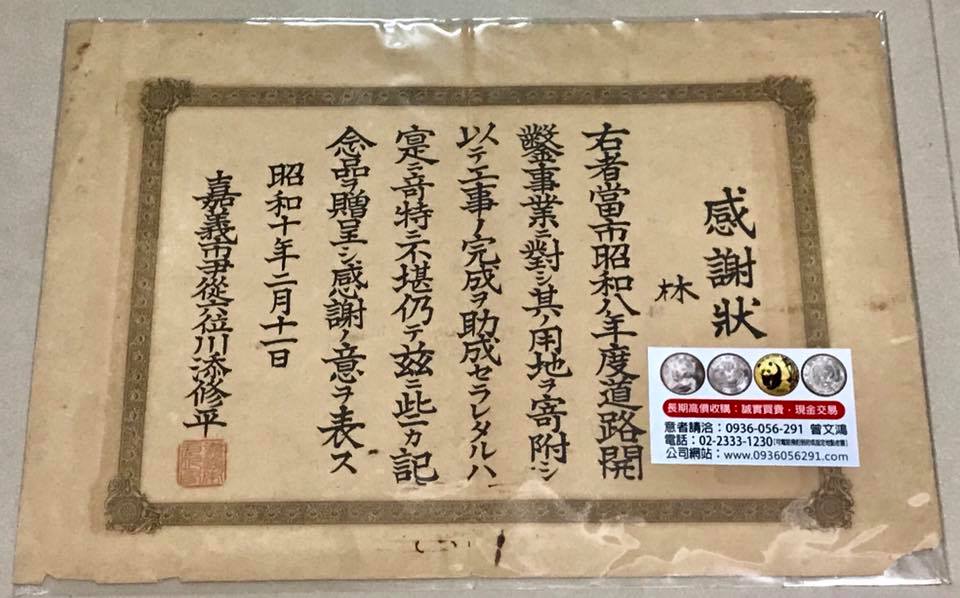 感謝狀
林
右者當市昭和八年度道路開
鑿事業ニ對シ其ノ用地ヲ寄附シ
以テ工事ノ完成ヲ助成セラレタルハ
寔ニ奇特ニ不堪仍テ玆ニ些カ記
念品ヲ贈呈シ感謝ノ意ヲ表ス
昭和十年二月十一日
嘉義市尹從六位川添修平
長期高價收購：誠實買賣・現金交易
意者請洽：0936-056-291 曾文鴻
電話：02-2333-1230
公司網站：www.0936056291.com